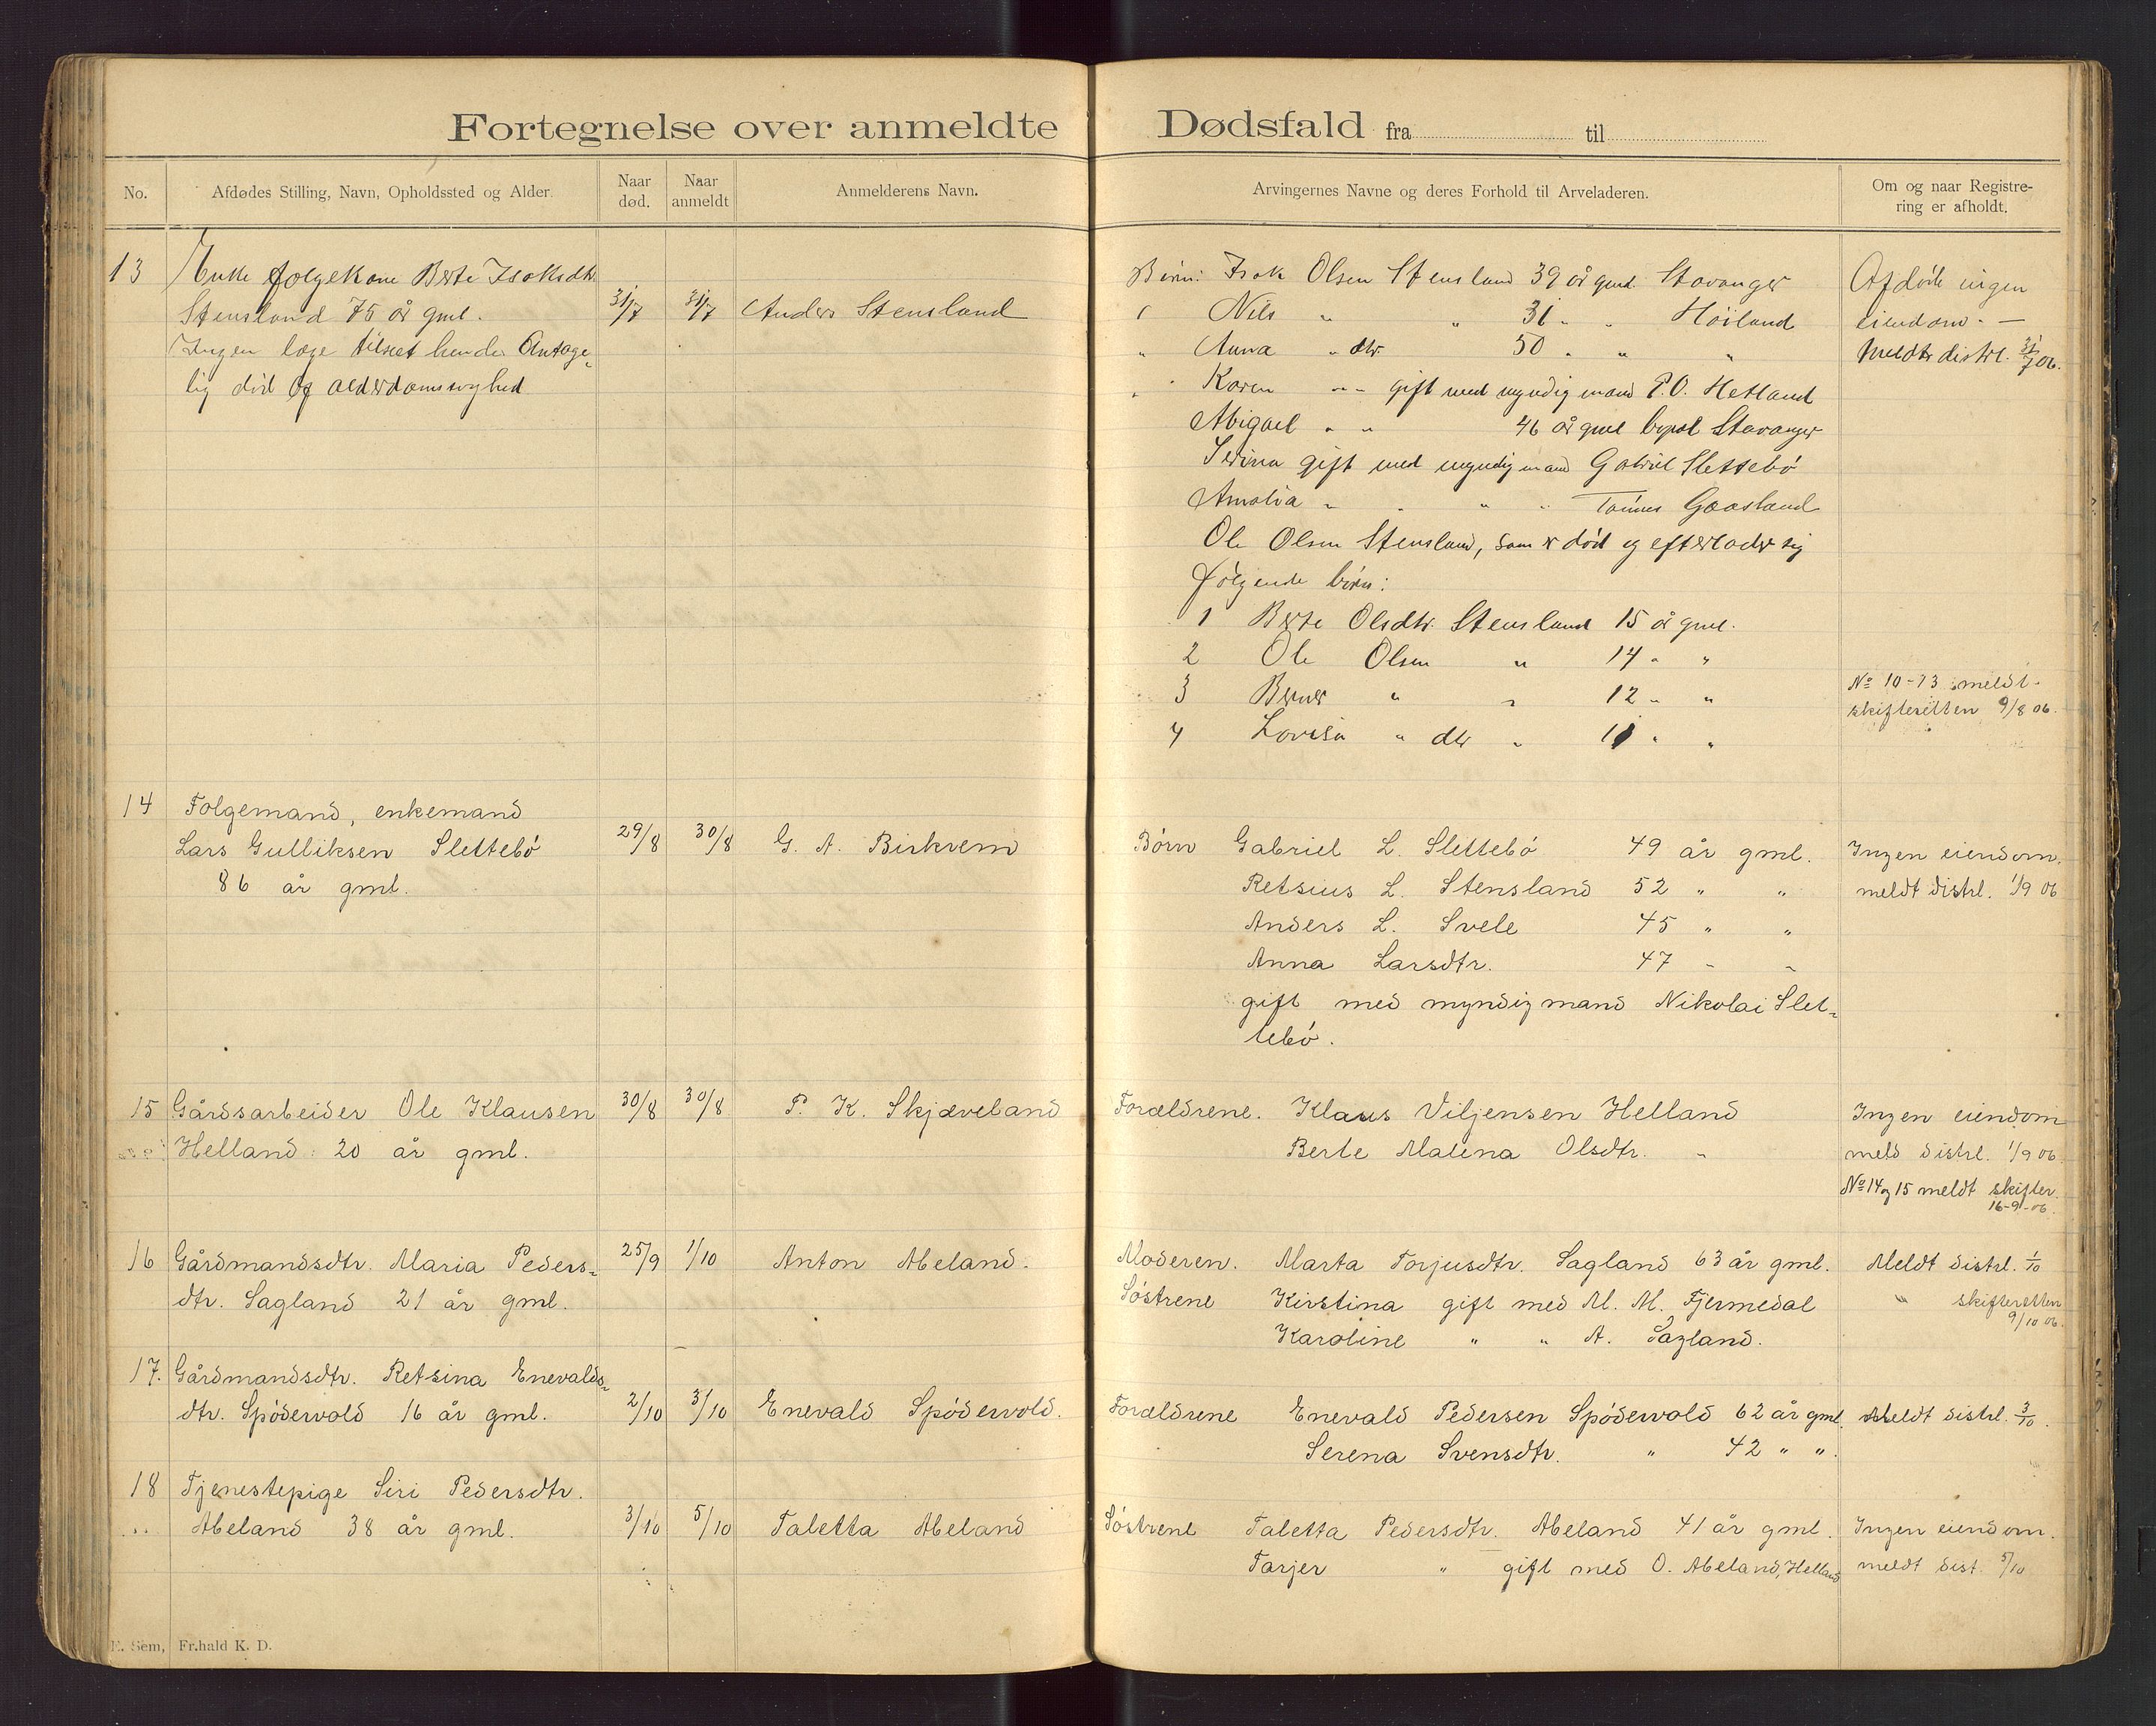 Fortegnelse over anmeldte Dødsfald fra til
No. Afdødes Stilling, Navn, Opholdssted og Alder. Naar død. Naar anmeldt Anmelderens Navn. Arvingernes Navne og deres Forhold til Arveladeren. Om og naar Registrering er afholdt.
13 Enke folgekone Berte Isaksdtr.
Stensland 75 år gml. 31/7 31/7 Anders Stensland
Ingen læge tilseet hende. Antage-
lig død af alderdomssvaghed
Børn: Isak Olsen Stensland 39 år gml. Stavanger
" Nils " " 31 " " Høiland
" Anna " dtr. 50 " " "
" Karen " " gift med myndig mand P. O. Hetland
Abigael " " 46 år gml bopæl Stavanger
Serina gift med myndig mand Gabriel Slettebø
Amalia " " " " Tønnes Gaasland
Ole Olsen Stensland, som er død og efterlader sig
følgende børn:
1 Berte Olsdtr. Stensland 15 år gml.
2 Ole Olsen " 14 " "
3 Berner " " 12 " "
4 Lovisa " dtr " 11 " "
Afdøde ingen
eiendom. —
Meldt distrl. 31/7 06.
No 10-13 meldt
skifteretten 9/8 06.
14 Folgemand, enkemand
Lars Gulliksen Slettebø 29/8 30/8 G. A. Birkrem
86 år gml.
Børn Gabriel L. Slettebø 49 år gml.
Retsius L. Stensland 52 " "
Anders L. Svele 45 " "
Anna Larsdtr. 47 " "
gift med myndig mand Nikolai Slet-
tebø.
Ingen eiendom.
meldt distrl. 1/9 06
15 Gårdsarbeider Ole Klausen 30/8 30/8 P. K. Skjæveland
Helland 20 år gml.
Forældrene. Klaus Viljensen Helland
Berte Malena Olsdtr. "
Ingen eiendom
meld distrl. 1/9 06.
No 14 og 15 meldt skifter.
16-9-06.
16 Gårdmandsdtr. Maria Peders- 25/9 1/10 Anton Abeland.
dtr. Sagland 21 år gml.
Moderen. Marta Torjusdtr. Sagland 63 år gml.
Søstrene Kirstina gift med M. M. Fjermedal
Karoline " " A. Sagland.
Meldt distrl. 1/10
" skifteretten
9/10 06.
17. Gårdmandsdtr. Retsina Enevalds-
dtr. Spødervold 16 år gml. 2/10 3/10 Enevald Spødervold.
Forældrene Enevald Pedersen Spødervold 62 år gml.
Serena Svensdtr. " 42 " ".
Meldt distrl. 3/10.
18 Tjenestepige Siri Pedersdtr.
Abeland 38 år gml. 3/10 5/10 Taletta Abeland
Søstrene Taletta Pedersdtr. Abeland 41 år gml.
Tarjer " gift med O. Abeland, Helland
Ingen eiendom.
meldt dist. 5/10
E. Sem, Fr.hald K. D.